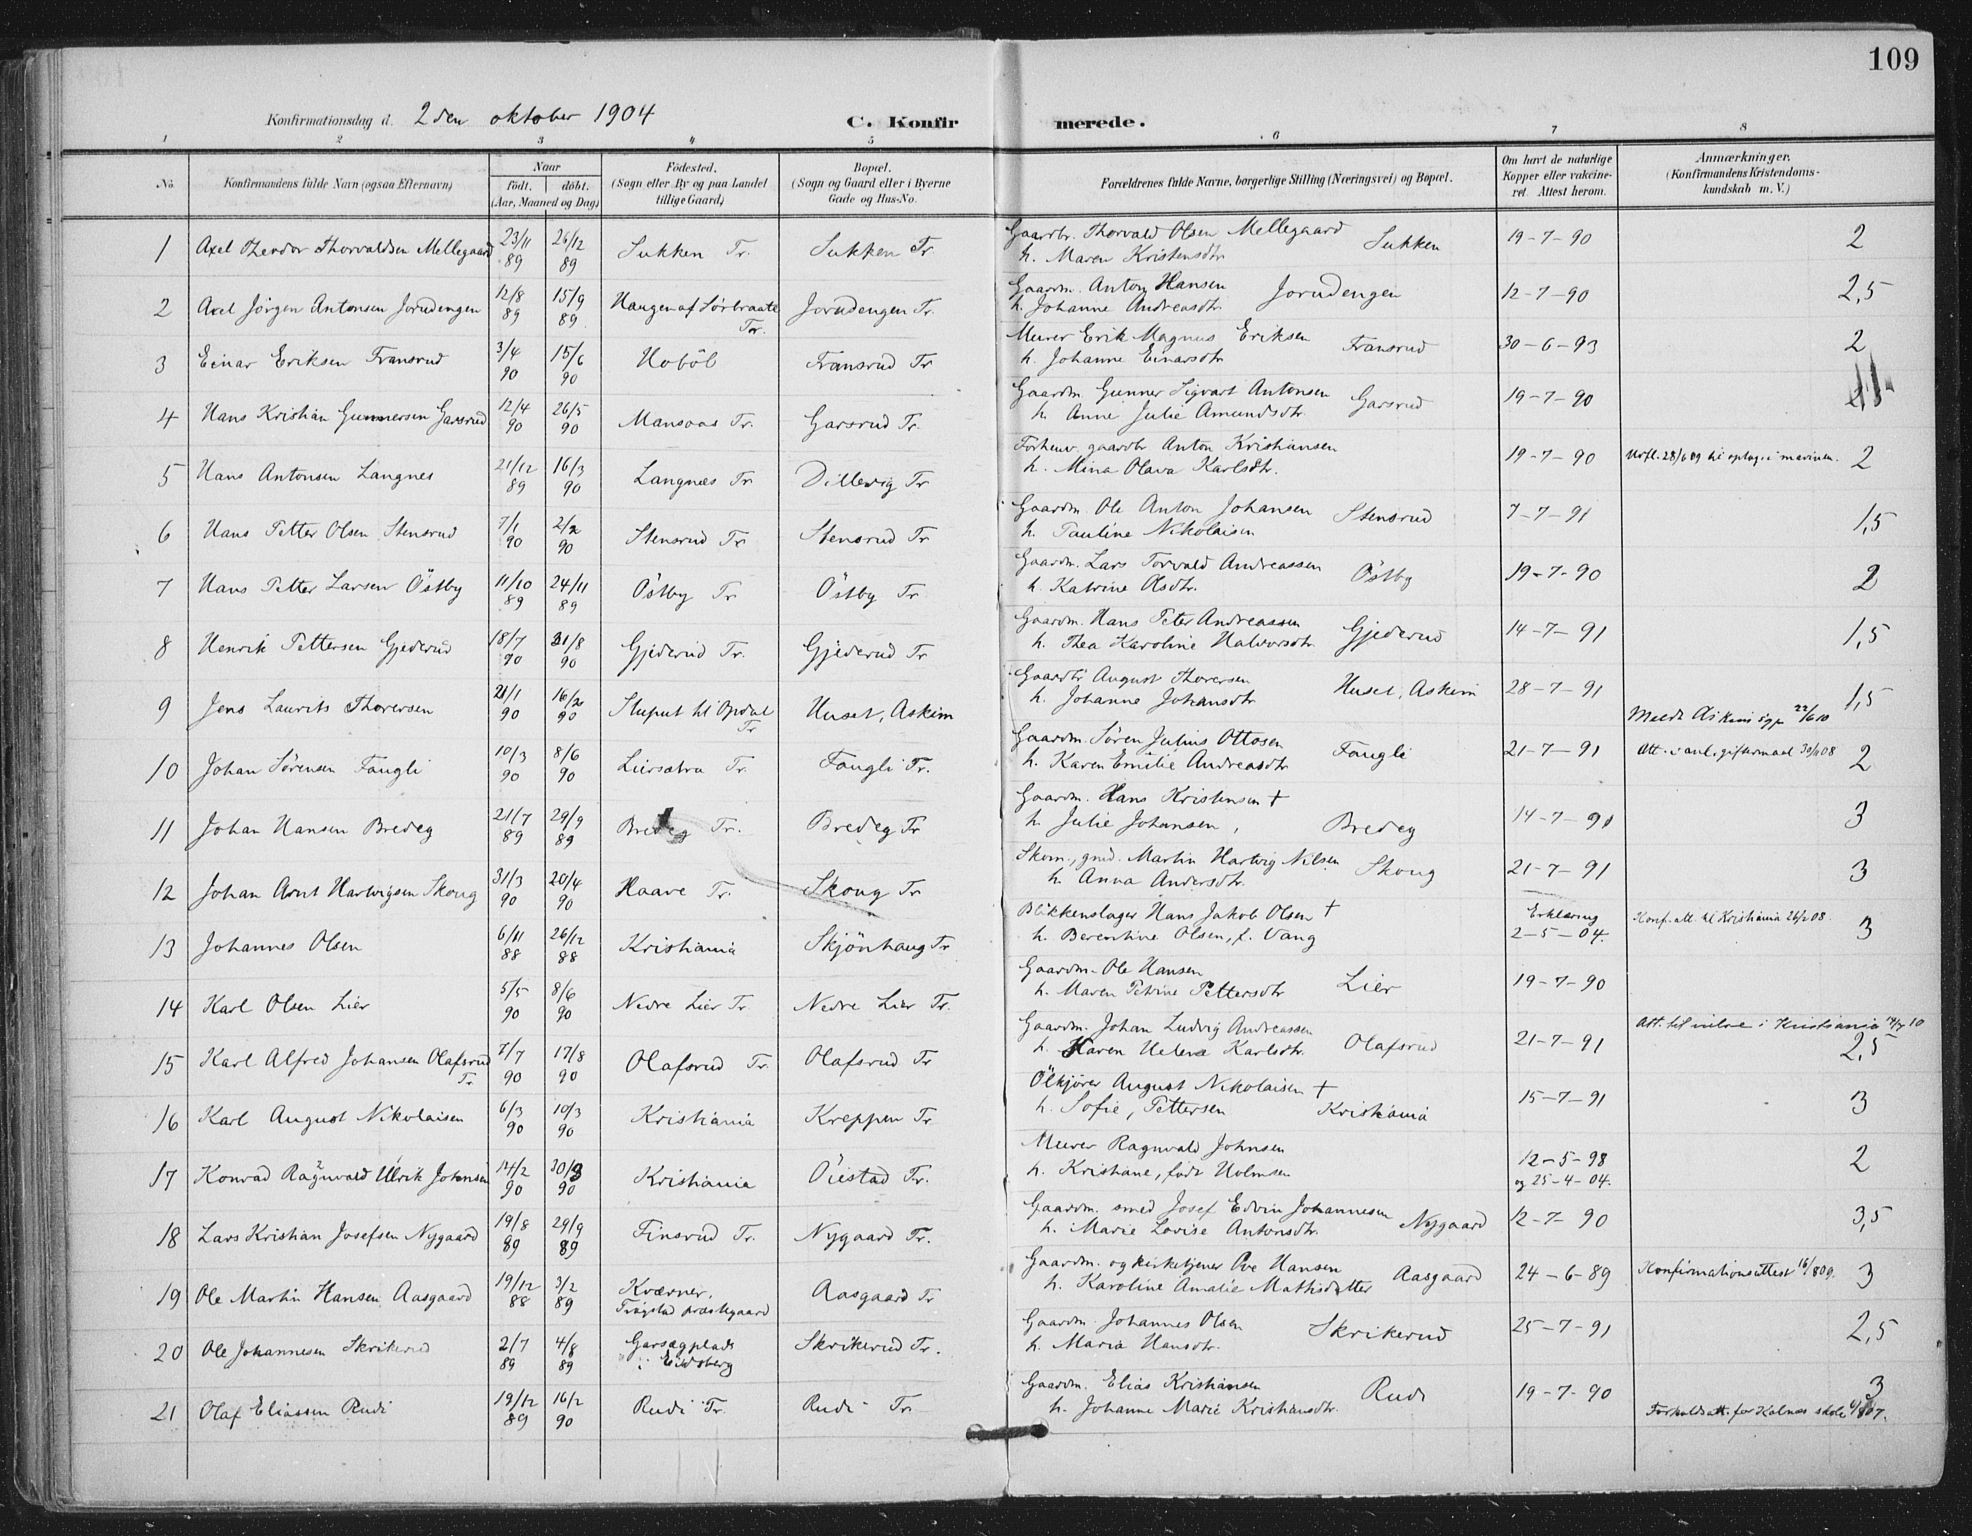 109
Konfirmationsdag d. 2den oktober 1904
C. Konfirmerede.
1 2 3 4 5 6 7 8
No.
Konfirmandens fulde Navn (ogsaa Efternavn)
Naar
födt. döbt.
(Aar, Maaned og Dag)
Födested.
(Sogn eller By og paa Landet
tillige Gaard)
Bopæl.
(Sogn og Gaard eller i Byerne
Gade og Hus-No.
Forældrenes fulde Navne, borgerlige Stilling (Næringsvei) og Bopæl.
Om havt de naturlige
Kopper eller vakcine-
ret. Attest herom.
Anmærkninger.
(Konfirmandens Kristendoms-
kundskab m. V.)
1 Axel Theodor Thorvaldsen Mellegaard 23/11 89 26/12 89 Sukken Tr. Sukken Tr Gaardbr. Thorvald Olsen Mellegaard Sukken 19-7-90 2
h. Maren Kristensdtr
2 Axel Jörgen Antonsen Jorudengen 12/8 89 15/9 89 Haugen af Sörbraate Tr. Jorudengen Tr. Gaardm. Anton Hansen Jorudengen 12-7-90 2,5
h. Johanne Andreasdtr
3 Einar Eriksen Fransrud 3/4 90 15/6 90 Hobøl Fransrud Tr Murer Erik Magnus Eriksen Fransrud 30-6-93 2
h. Johanne Einarsdtr
4 Hans Kristian Gunnersen Garsrud 12/4 90 26/5 90 Mansaas Tr. Garsrud Tr. Gaardm. Gunner Sigvart Antonsen Garsrud 19-7-90
h. Anne Julie Amundsdtr.
5 Hans Antonsen Langnes 21/12 89 16/3 90 Langnæs Tr Dillevig Tr Forhenv. gaardbr Anton Kristiansen 19-7-90 Utfl. 28/6 09 til optag. i marinen. 2
h. Mina Olava Karlsdtr.
6 Hans Petter Olsen Stensrud 7/1 90 2/2 90 Stensrud Tr Stensrud Tr Gaardm Ole Anton Johansen Stensrud 7-7-91 1,5
h. Pauline Nikolaisen
7 Hans Petter Larsen Östby 11/10 89 24/11 89 Östby Tr Östby Tr Gaardm. Lars Torvald Andreassen Östby 19-7-90 2
h. Katrine Olsdtr.
8 Henrik Pettersen Gjederud 18/7 90 31/8 90 Gjederud Tr. Gjederud Tr Gaardm. Hans Peter Andreassen Gjederud 14-7-91 1,5
h. Thea Karoline Halvorsdtr
9 Jens Laurits Thoresen 21/1 90 16/2 90 Stuput til Opdal Tr Huset, Askim Gaardbr August Thoresen Huset, Askim 28-7-91 1,5
h. Johanne Johansdtr Meldt Askims sgp 22/6 10
10 Johan Sørensen Fangli 10/3 90 8/6 90 Liersætra Tr. Fangli Tr. Gaardm. Sören Julius Ottosen Fangli 21-7-91 Att. i anl. giftermaal 08 2
h. Karen Emilie Andreasdtr
11 Johan Hansen Bredeg 21/7 89 29/9 89 Bredeg Tr. Bredeg Tr Gaardm. Hans Kristensen † 14-7-91 3
h. Julie Johansen, Bredeg
12 Johan Arnt Hartvigsen Skoug 31/3 90 20/4 90 Haave Tr. Skoug Tr Skom., gmd. Martin Hartvig Nilsen Skoug 21-7-91 3
h. Anna Andersdtr.
13 Johannes Olsen 6/11 88 26/12 88 Kristiania Skjönhaug Tr Blikkenslager Hans Jakob Olsen † Erklæring 2-5-04. Konf. att. til Kristiania 08. 3
h. Berentine Olsen, f. Vang
14 Karl Olsen Lier 5/5 90 8/6 90 Nedre Lier Tr. Nedre Lier Tr. Gaardm. Ole Hansen Lier 19-7-90
h. Maren Petrine Pettersdtr
15 Karl Alfred Johansen Olafsrud Tr 7/7 90 17/8 90 Olafsrud Tr. Olafsrud Tr Gaardm. Johan Ludvig Andreassen Olafsrud 21-7-91 Att. til i Kristiania 10 2,5
h. Karen Helene Karlsdtr.
16 Karl August Nikolaisen 6/3 90 10/3 90 Kristiania Kreppen Tr Ölkjörer August Nikolaisen † 15-7-91 3
h. Sofie, Pettersen Kristiania
17 Konrad Ragnvald Ulrik Johnsen 14/2 90 30/3 90 Kristiania Öiestad Tr. Murer Ragnvald Johnsen 12-5-98 og 25-4-04. 2
h. Kristiane, født Holmsen
18 Lars Kristian Josefsen Nygaard 19/8 89 29/9 89 Finsrud Tr. Nygaard Tr. Gaardm. smed Josef Edvin Johannesen Nygaard 12-7-90 3,5
h. Marie Lovise Antonsdtr.
19 Ole Martin Hansen Aasgaard 19/12 88 3/2 89 Kværner, Trøgstad præstegaard Aasgaard Tr Gaardm. og kirketjener Ove Hansen Aasgaard 24-6-89 Konfirmationsattest 16/8 09. 3
h. Karoline Amalie Mathisdatter
20 Ole Johannesen Skrikerud 2/7 89 4/8 89 Garsegplads i Eidsberg Skrikerud Tr. Gaardm. Johannes Olsen Skrikerud 25-7-91 2,5
h. Maria Hansdtr.
21 Olaf Eliassen Rudi 19/12 89 16/2 90 Rudi Tr. Rudi Tr. Gaardm. Elias Kristiansen Rudi 19-7-90 3
h. Johanne Marie Kristiansdtr. Forholdsatt. for Kalnes skole 07.